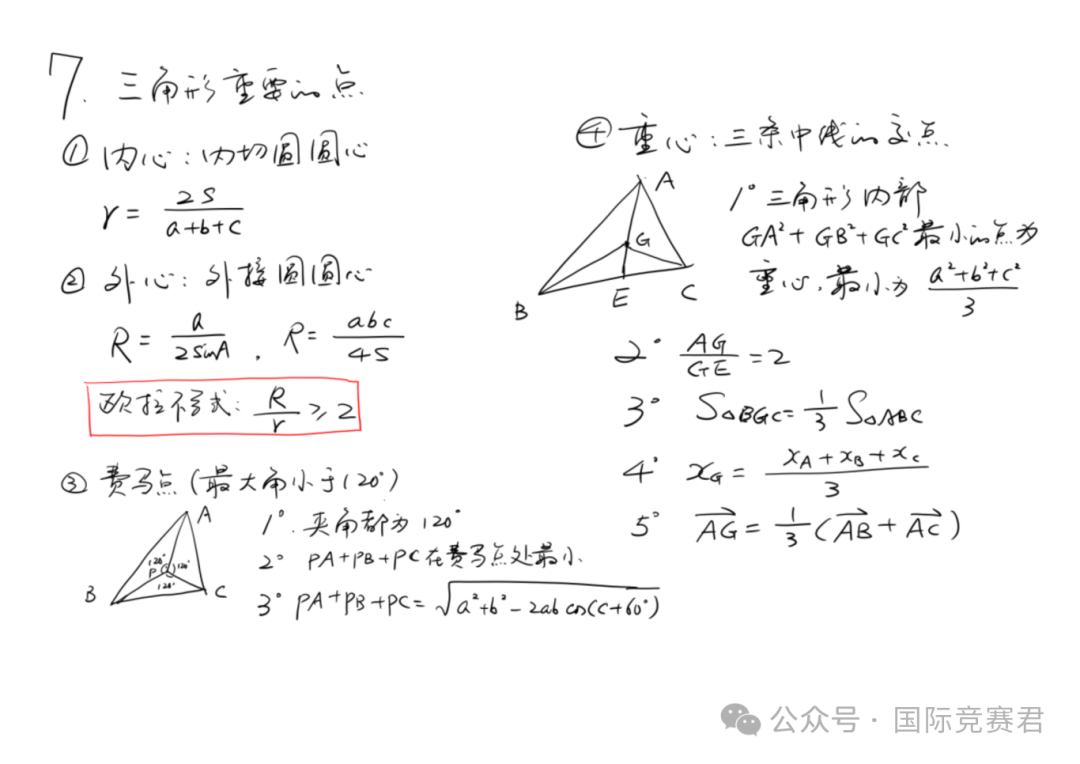 7. 三角形重要的点
① 内心：内切圆圆心
r = 2S/(a+b+c)
② 外心：外接圆圆心
R = a/(2sinA) , R = abc/(4S)
欧拉不等式: R/r ≥ 2
③ 费马点（最大角小于120°）
A
B
C
P
120°
120°
120°
1°. 夹角都为120°
2° PA+PB+PC在费马点处最小.
3° PA+PB+PC=√(a²+b²-2ab cos(C+60°))
④ 重心：三条中线的交点
A
G
B
E
C
1° 三角形内部
GA²+GB²+GC²最小的点为
重心, 最小为 (a²+b²+c²)/3
2° AG/GE = 2
3° S△BGC = 1/3 S△ABC
4° x_G = (x_A+x_B+x_C)/3
5° →AG = 1/3(→AB + →AC)
公众号 · 国际竞赛君